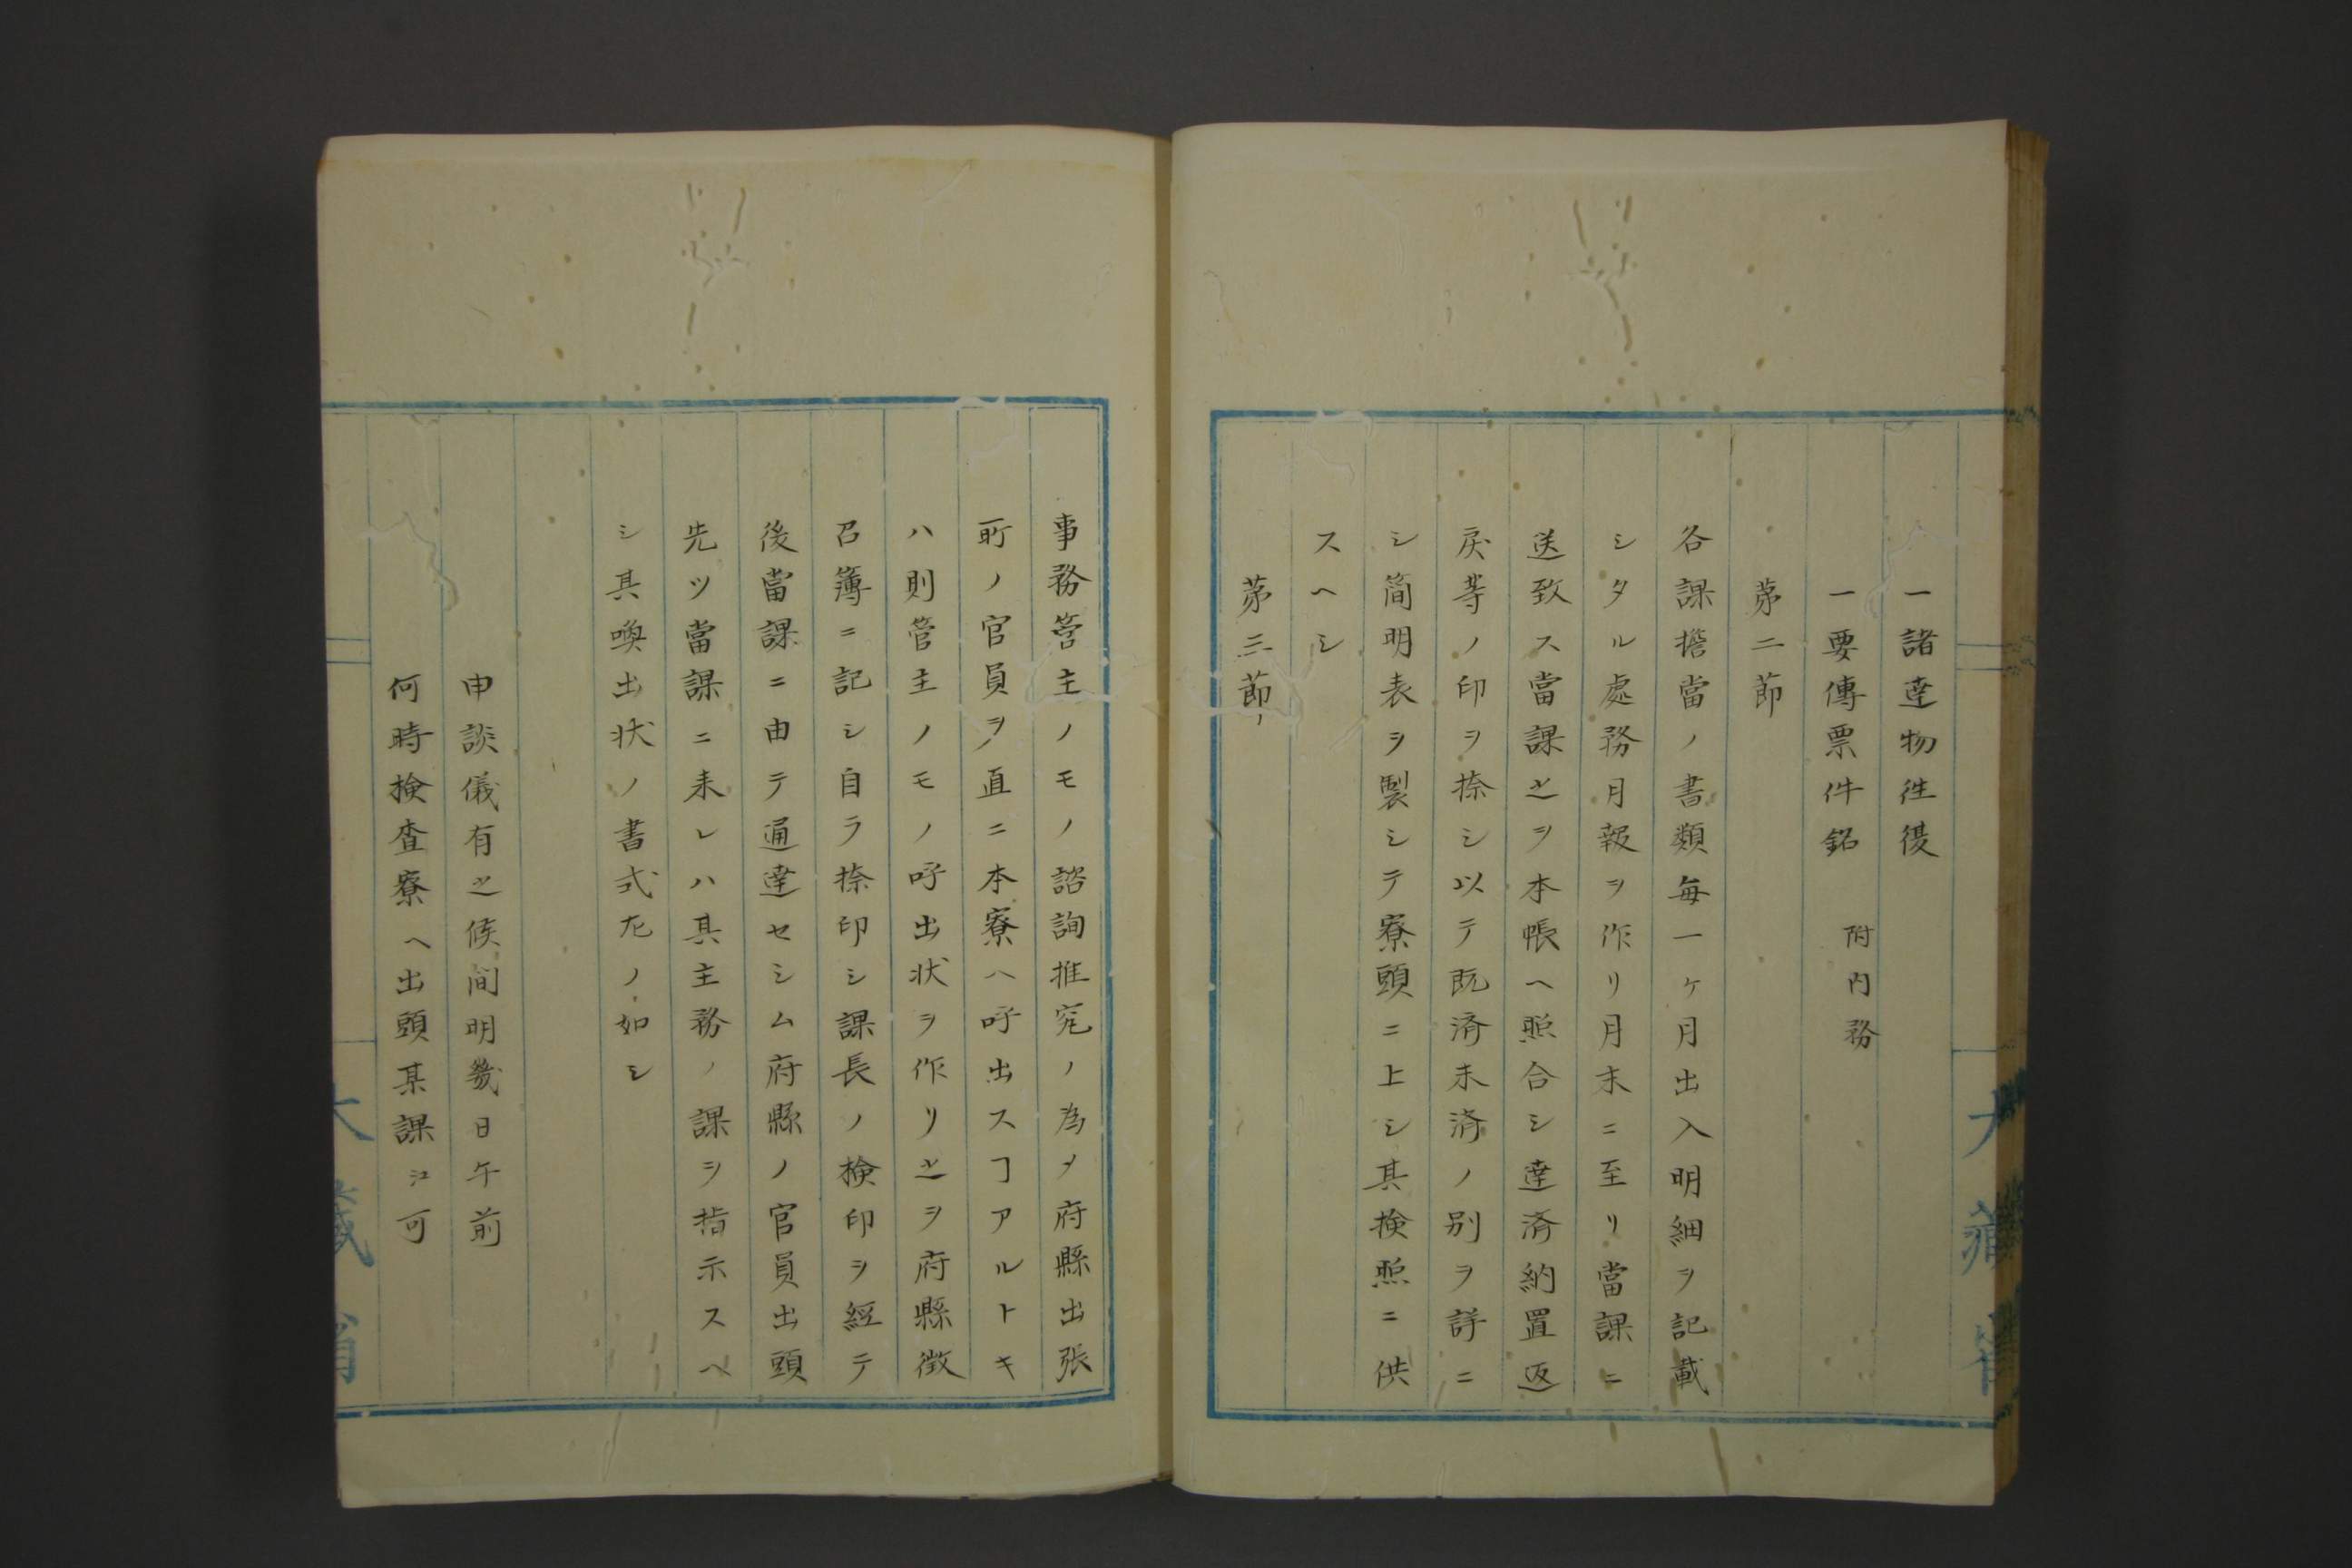 一諸達物往復
一要傳票件銘 附内務
第二節
各課擔當ノ書類毎一ケ月出入明細ヲ記載
シタル處務月報ヲ作リ月末ニ至リ當課ニ
送致ス當課之ヲ本帳ヘ照合シ達済納置返
戻等ノ印ヲ捺シ以テ既済未済ノ別ヲ詳ニ
シ簡明表ヲ製シテ寮頭ニ上シ其検照ニ供
スヘシ
第三節
事務管主ノモノ諮詢推究ノ為メ府縣出張
所ノ官員ヲ直ニ本寮ヘ呼出スヿアルトキ
ハ則管主ノモノ呼出状ヲ作リ之ヲ府縣徴
召簿ニ記シ自ラ捺印シ課長ノ検印ヲ經テ
後當課ニ由テ通達セシム府縣ノ官員出頭
先ツ當課ニ来レハ其主務ノ課ヲ指示スヘ
シ其喚出状ノ書式左ノ如シ
申談儀有之候間明幾日午前
何時検査寮ヘ出頭某課江可
大藏省
大藏省